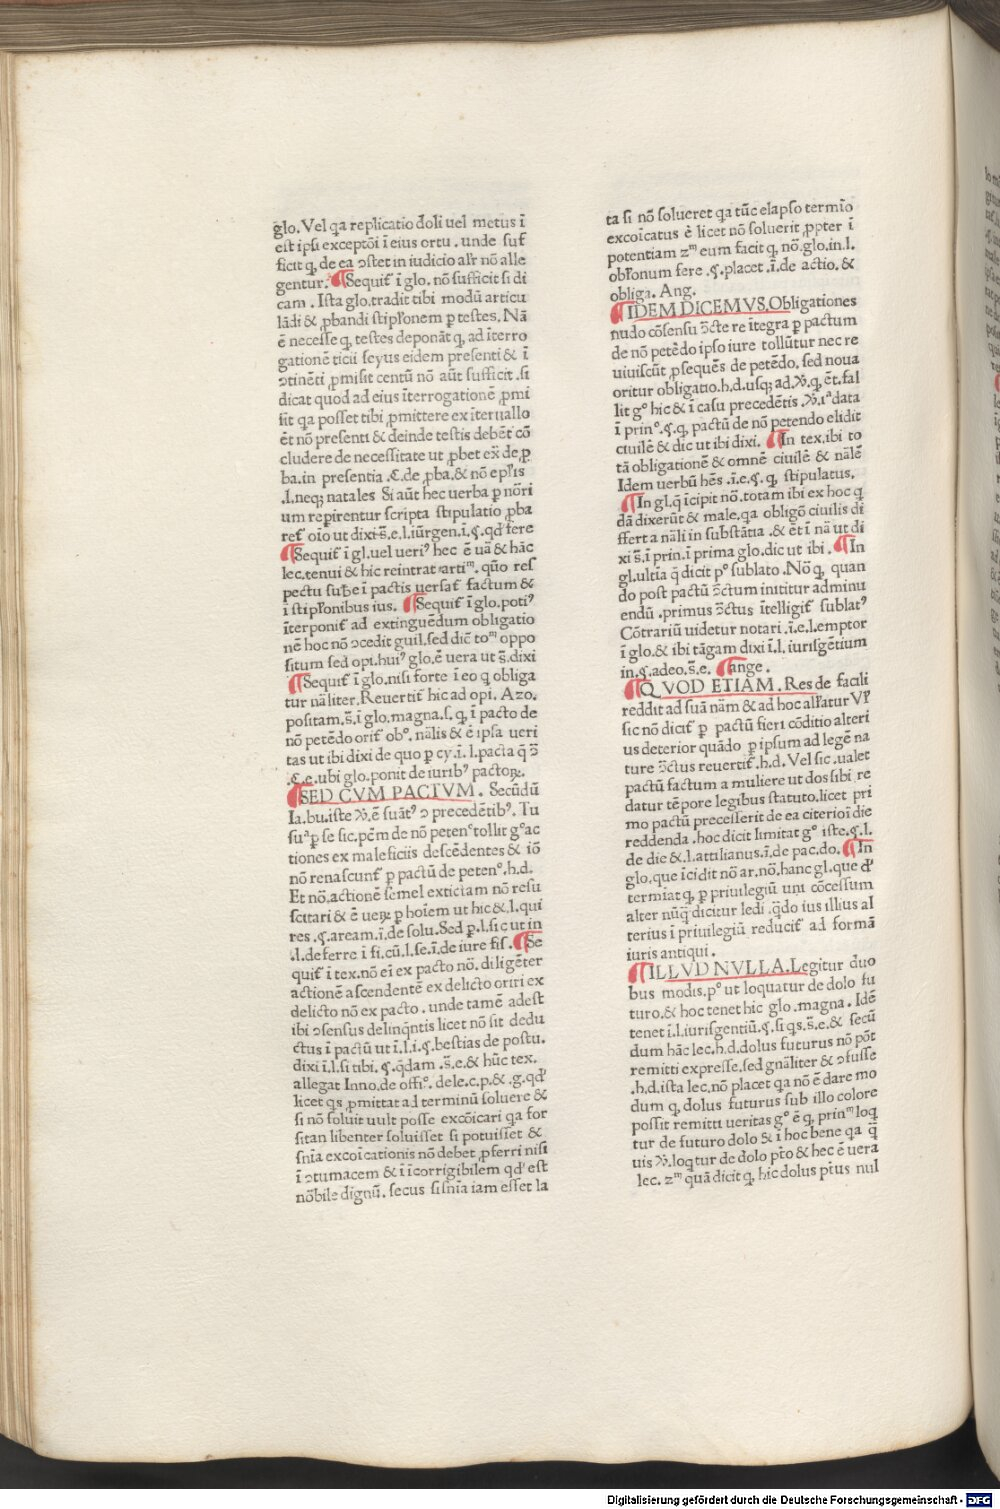 glo. Vel qa replicatio doli uel metus ī
est ipsi exceptōi ī eius ortu. unde suf
ficit q, de ea ↄstet in iudicio alr̄ nō alle
gentur. ¶Sequit̄ ī glo. nō sufficit si di
cam. Ista glo. tradit tibi modū articu
lādi & ꝓbandi stipl̄onem p testes. Nā
ē necesse q, testes deponāt q, ad īterro
gationē ticii seyus eidem presenti & ī
ↄtinēti ꝓmisit centū nō aūt sufficit. si
dicat quod ad eius īterrogationē ꝓmi
sit qa posset tibi ꝓmittere ex īteruallo
ēt nō presenti & deinde testis debēt cō
cludere de necessitate ut ꝓbet ex̄ de ꝓ
ba. in presentia .C. de ꝓba. & nō ep̄ris
.l. neq; natales Si aūt hec uerba p nōri
um repirentur scripta stipulatio ꝓba
ret̄ oīo ut dixi s̄. e. l. iūrgen. ī. §. qd' fere
¶Sequit̄ ī gl. uel ueri⁹ hec ē uā & hāc
lec. tenui & hic reintrat arti᷒ᵐ. quo res
pectu subē ī pactis uersat̄ factum &
ī stipl̄onibus ius. ¶Sequit̄ ī glo. poti⁹
īterponit̄ ad extinguēdum obligatio
nē hoc nō ↄcedit guil. sed dic̄ toᵐ oppo
situm sed opi. hui⁹ glo. ē uera ut s̄. dixi
¶Sequit̄ ī glo. nisi forte ī eo q obliga
tur nāliter. Reuertit̄ hic ad opi. Azo.
positam. s̄. ī glo. magna. s. q, ī pacto de
nō petēdo orit̄ obᵒ. nālis & ē ipsa ueri
tas ut ibi dixi de quo p cy. ī. l. pacta q̄ ↄ̄
.C. e. ubi glo. ponit de iurib⁹ pactoꝝ.
¶SED CVM PACTVM. Secūdū
Ia. bu. iste ℣. ē suāt⁹ ↄ precedētib⁹. Tu
suᵃp se sic. pc̄m de nō petenᶜ tollit gᵉac
tiones ex maleficiis descēdentes & iō
nō renascunt̄ p pactū de petenᵒ. h.d.
Et nō. actionē semel extictam nō resu
scitari & ē ueꝝ p hoīem ut hic & .l. qui
res .§. aream. ī. de solu. Sed p. l. sic ut in
.l. deferre ī fi. cū. l. se. ī. de iure fis. ¶Se
quit̄ ī tex. nō eī ex pacto nō. diligēter
actionē ascendentē ex delicto oriri ex
delicto nō ex pacto. unde tamē adest
ibi ↄsensus delinqntis licet nō sit dedu
ctus ī pactū ut ī. l. i. §. bestias de postu.
dixi ī. l. si tibi. §. q̄dam .s̄. e. & hūc tex.
allegat Inno. de offiᵒ. dele. c. p. & .g. qd'
licet qs ꝓmittat ad terminū soluere &
si nō soluit uult posse excōicari qa for
sitan libenter soluisset si potuisset &
snīa excoīcationis nō debet ꝓferri nisi
ī ↄtumacem & ī īcorrigibilem qd' est
nōbile dignū. secus si snīa iam esset la
ta si nō solueret qa tūc elapso termīo
excoīcatus ē licet nō soluerit ꝓpter ī
potentiam zᵐ eum facit q, nō. glo. in. l.
obl̄onum fere .§. placet .ī. de actio. &
obliga. Ang.
¶IDEM DICEMVS. Obligationes
nudo cōsensu ↄ̄cte re ītegra p pactum
de nō petēdo ipso iure tollūtur nec re
uiuiscūt ꝓsequēs de petēdo. sed noua
oritur obligatio. h.d. usq; ad. ℣. q, ēt. fal
lit gᵒ hic & ī casu precedētis .℣. iᵃ data
ī prinᵒ. §. q, pactū de nō petendo elidit
ciuilē & dic ut ibi dixi. ¶In tex. ibi to
tā obligationē & omnē ciuilē & nālē
Idem uerbū hēs .ī. e. §. q, stipulatus.
¶In gl. q̄ īcipit nō. totam ibi ex hoc q
dā dixerūt & male. qa obligō ciuilis di
ffert a nāli in substātia. & ēt ī nā ut di
xi s̄. ī prin. ī prima glo. dic ut ibi. ¶In
gl. ultīa q̄ dicit pᵒ sublato. Nō q, quan
do post pactū ↄ̄ctum inititur adminu
endū. primus ↄ̄ctus ītelligit̄ sublat⁹
Cōtrariū uidetur notari .ī. e. l. emptor
ī glo. & ibi tāgam dixi ī. l. iurisgētium
in. §. adeo. s̄. e. ¶ange.
¶QVOD ETIAM. Res de facili
reddit ad suā nām & ad hoc all̄atur Vl̄
sic nō dicit̄ p pactū fieri cōditio alteri
us deterior quādo p ipsum ad legē na
ture ↄ̄ctus reuertit̄. h.d. Vel sic. ualet
pactū factum a muliere ut dos sibi re
datur tēpore legibus statuto. licet pri
mo pactū precesserit de ea citerioī die
reddenda. hoc dicit limitat gᵒ iste. §. l.
de die & .l. attilianus. ī. de pac. do. ¶In
glo. que īcidit nō ar. nō. hanc gl. que d'
termiat q, p priuilegiū uni cōcessum
alter nūq̄ dicitur ledi. q̄do ius illius al
terius ī priuilegiū reducit̄ ad formā
iuris antiqui.
¶ILLVD NVLLA. Legitur duo
bus modis. pᵒ ut loquatur de dolo fu
turo. & hoc tenet hic glo. magna. Idē
tenet ī. l. iurisgentiū. §. si qs. s̄. e. & secū
dum hāc lec. h.d. dolus futurus nō pōt
remitti expresse. sed gnāliter & ↄfusse
.h.d. ista lec. nō placet qa nō ē dare mo
dum q, dolus futurus sub illo colore
possit remitti ueritas gᵒ ē q, prinᵐ loq
tur de futuro dolo & ī hoc bene qa q̄
uis ℣. loqtur de dolo pt̄o & hec ē uera
lec. zᵐ quā dicit q, hic dolus pt̄us nul
Digitalisierung gefördert durch die Deutsche Forschungsgemeinschaft - DFG